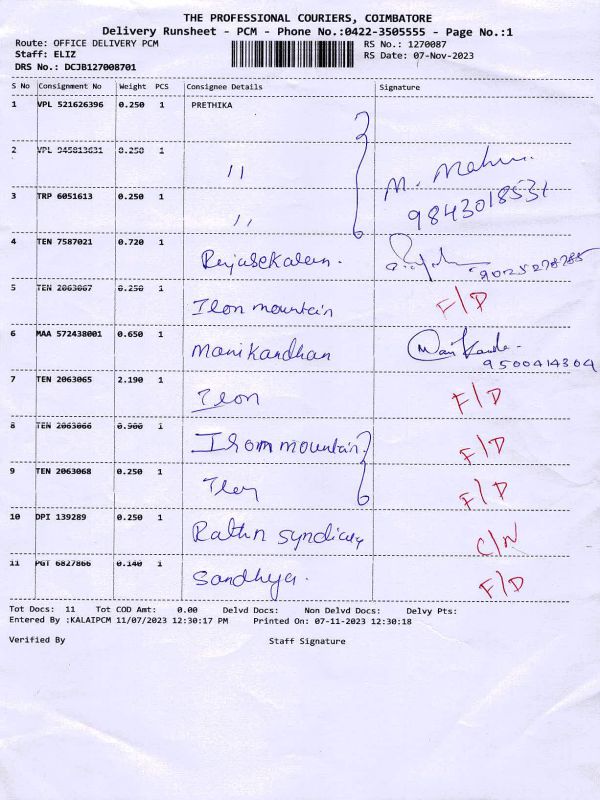 THE PROFESSIONAL COURIERS, COIMBATORE
Delivery Runsheet - PCM - Phone No.:0422-3505555 - Page No.:1
Route: OFFICE DELIVERY PCM RS No.: 1270087
Staff: ELIZ RS Date: 07-Nov-2023
DRS No.: DCJB127008701
S No Consignment No Weight PCS Consignee Details Signature
1 VPL 521626396 0.250 1 PRETHIKA
2 VPL 945813631 0.250 1 11
3 TRP 6051613 0.250 1 11 M.
9843018531
4 TEN 7587021 0.720 1
5 TEN 2063067 0.250 1 Iron mountain F/D
6 MAA 572438001 0.650 1 Manikandhan
9500414304
7 TEN 2063065 2.190 1 F/D
8 TEN 2063066 0.900 1 Irom mountain F/D
9 TEN 2063068 0.250 1 F/D
10 DPI 139289 0.250 1 C/N
11 PGT 6827866 0.140 1 Sandhya. F/D
Tot Docs: 11 Tot COD Amt: 0.00 Delvd Docs: Non Delvd Docs: Delvy Pts:
Entered By :KALAIPCM 11/07/2023 12:30:17 PM Printed On: 07-11-2023 12:30:18
Verified By Staff Signature